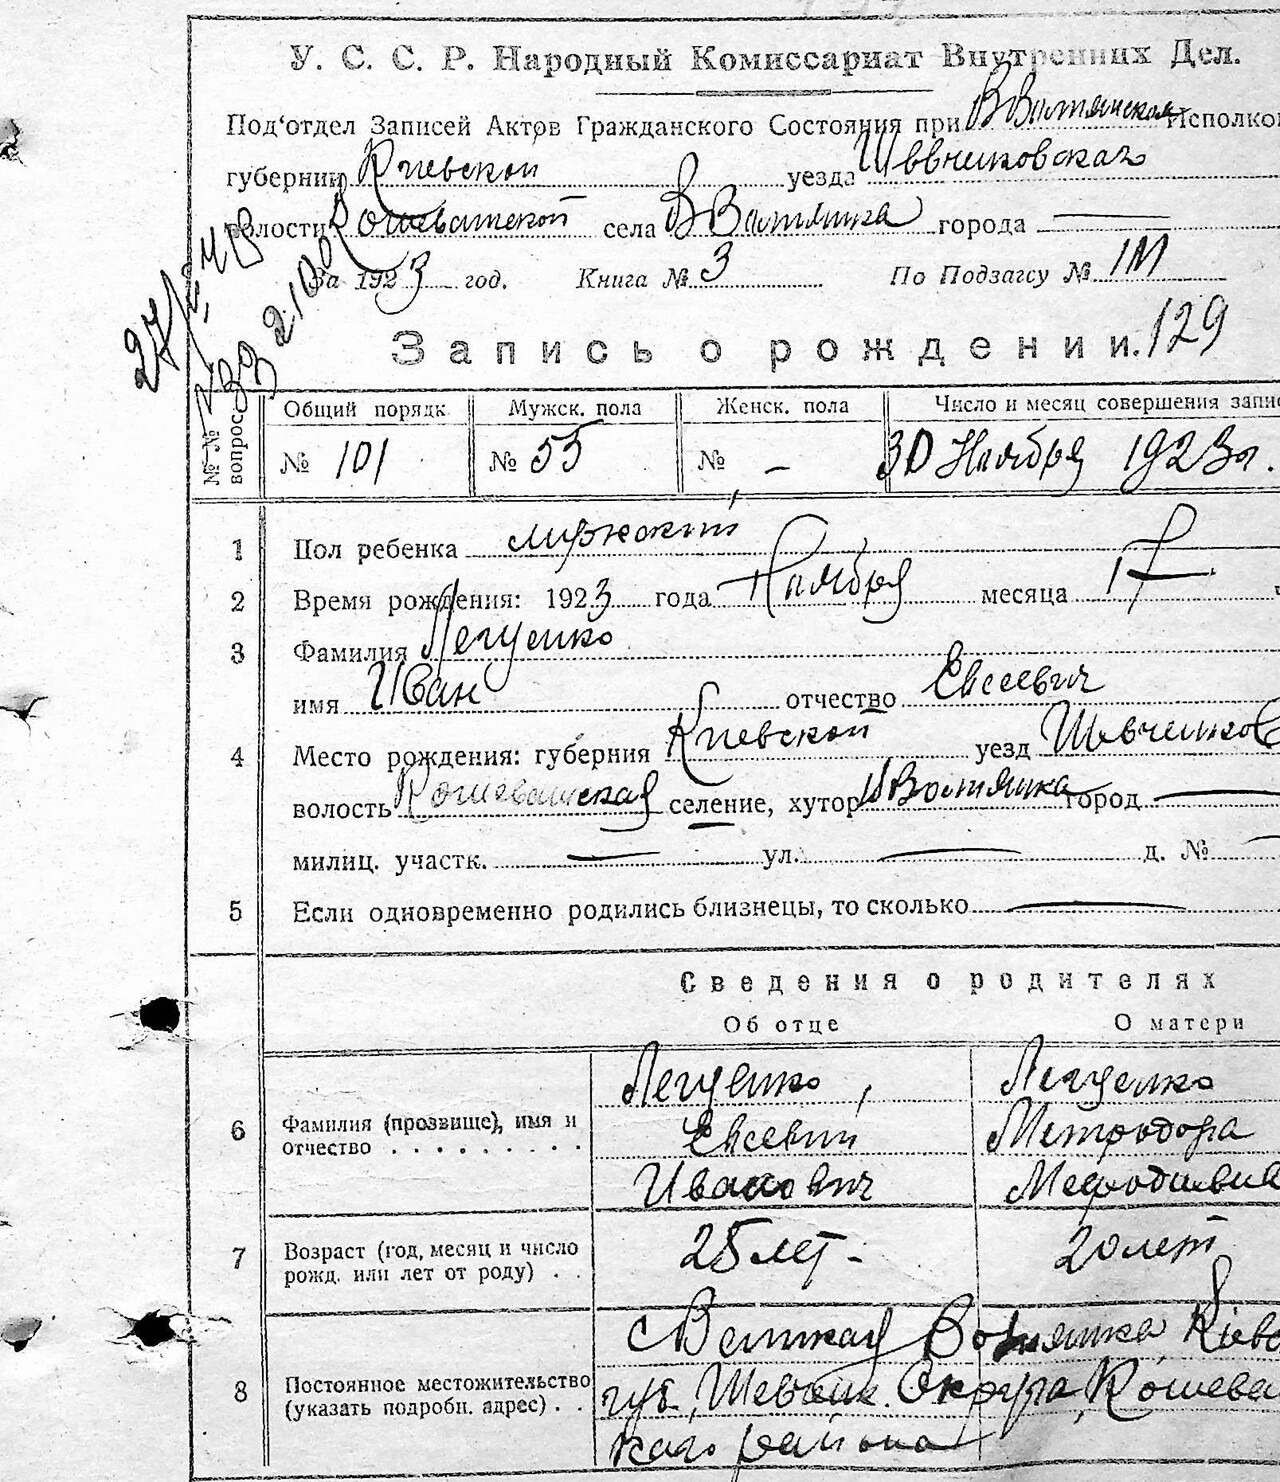 У. С. С. Р. Народный Комиссариат Внутренних Дел.
Под'отдел Записей Актов Гражданского Состояния при В Вотянском Исполко
губернии Киевской уезда Шевченковского
волости Кошеватской села В Вотянка города —
За 1923 год. Книга № 3 По Подзагсу №
Запись о рождении. 129
№ № вопрос. Общий порядк. Мужск. пола Женск. пола Число и месяц совершения запис
№ 101 № 55 № - 30 Ноября 1923 г.
1 Пол ребенка мужский
2 Время рождения: 1923 года Ноября месяца 17 ч
3 Фамилия Легуенко
имя Иван отчество Евсеевич
4 Место рождения: губерния Киевской уезд Шевченков
волость Кошеватская селение, хутор В Вотянка город —
милиц. участк. — ул. — д. № —
5 Если одновременно родились близнецы, то сколько —
Сведения о родителях
Об отце О матери
6 Фамилия (прозвище), имя и отчество . . . . . . . . .
Легуенко, Легуенко
Евсевий Метродора
Иванович
7 Возраст (год, месяц и число рожд. или лет от роду) . .
25 лет. 20 лет
8 Постоянное местожительство (указать подробн. адрес) . .
с Великая Вотянка, Кіевс
губ, Шевченк. Округа, Кошева
кого района